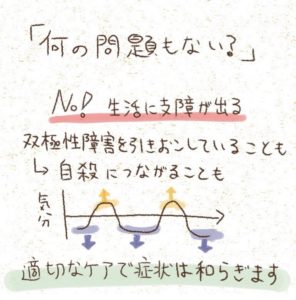 「何の問題もない?」
No! 生活に支障が出る
双極性障害を引きおこしていることも
↳ 自殺につながることも
気分
適切なケアで症状は和らぎます